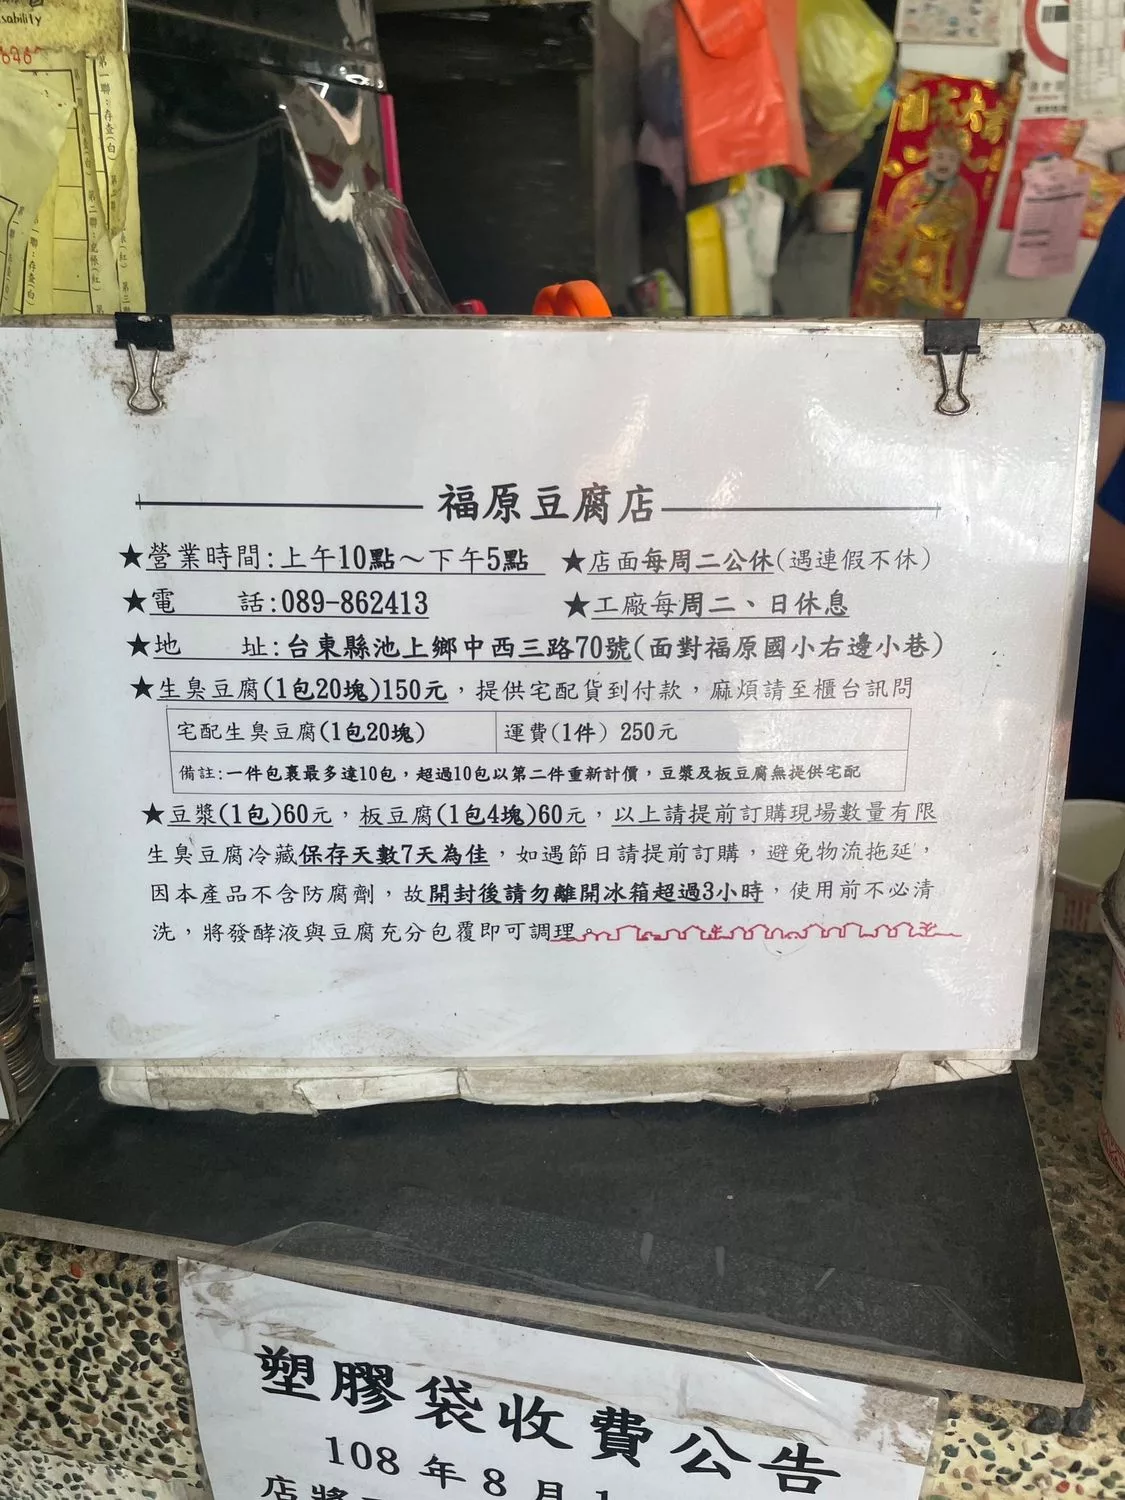 sability
福原豆腐店
★營業時間:上午10點～下午5點 ★店面每周二公休(遇連假不休)
★電 話:089-862413 ★工廠每周二、日休息
★地 址:台東縣池上鄉中西三路70號(面對福原國小右邊小巷)
★生臭豆腐(1包20塊)150元，提供宅配貨到付款，麻煩請至櫃台訊問
宅配生臭豆腐(1包20塊) 運費(1件) 250元
備註:一件包裹最多達10包，超過10包以第二件重新計價，豆漿及板豆腐無提供宅配
★豆漿(1包)60元，板豆腐(1包4塊)60元，以上請提前訂購現場數量有限
生臭豆腐冷藏保存天數7天為佳，如遇節日請提前訂購，避免物流拖延，
因本產品不含防腐劑，故開封後請勿離開冰箱超過3小時，使用前不必清
洗，將發酵液與豆腐充分包覆即可調理。
塑膠袋收費公告
108 年 8 月 1
店將